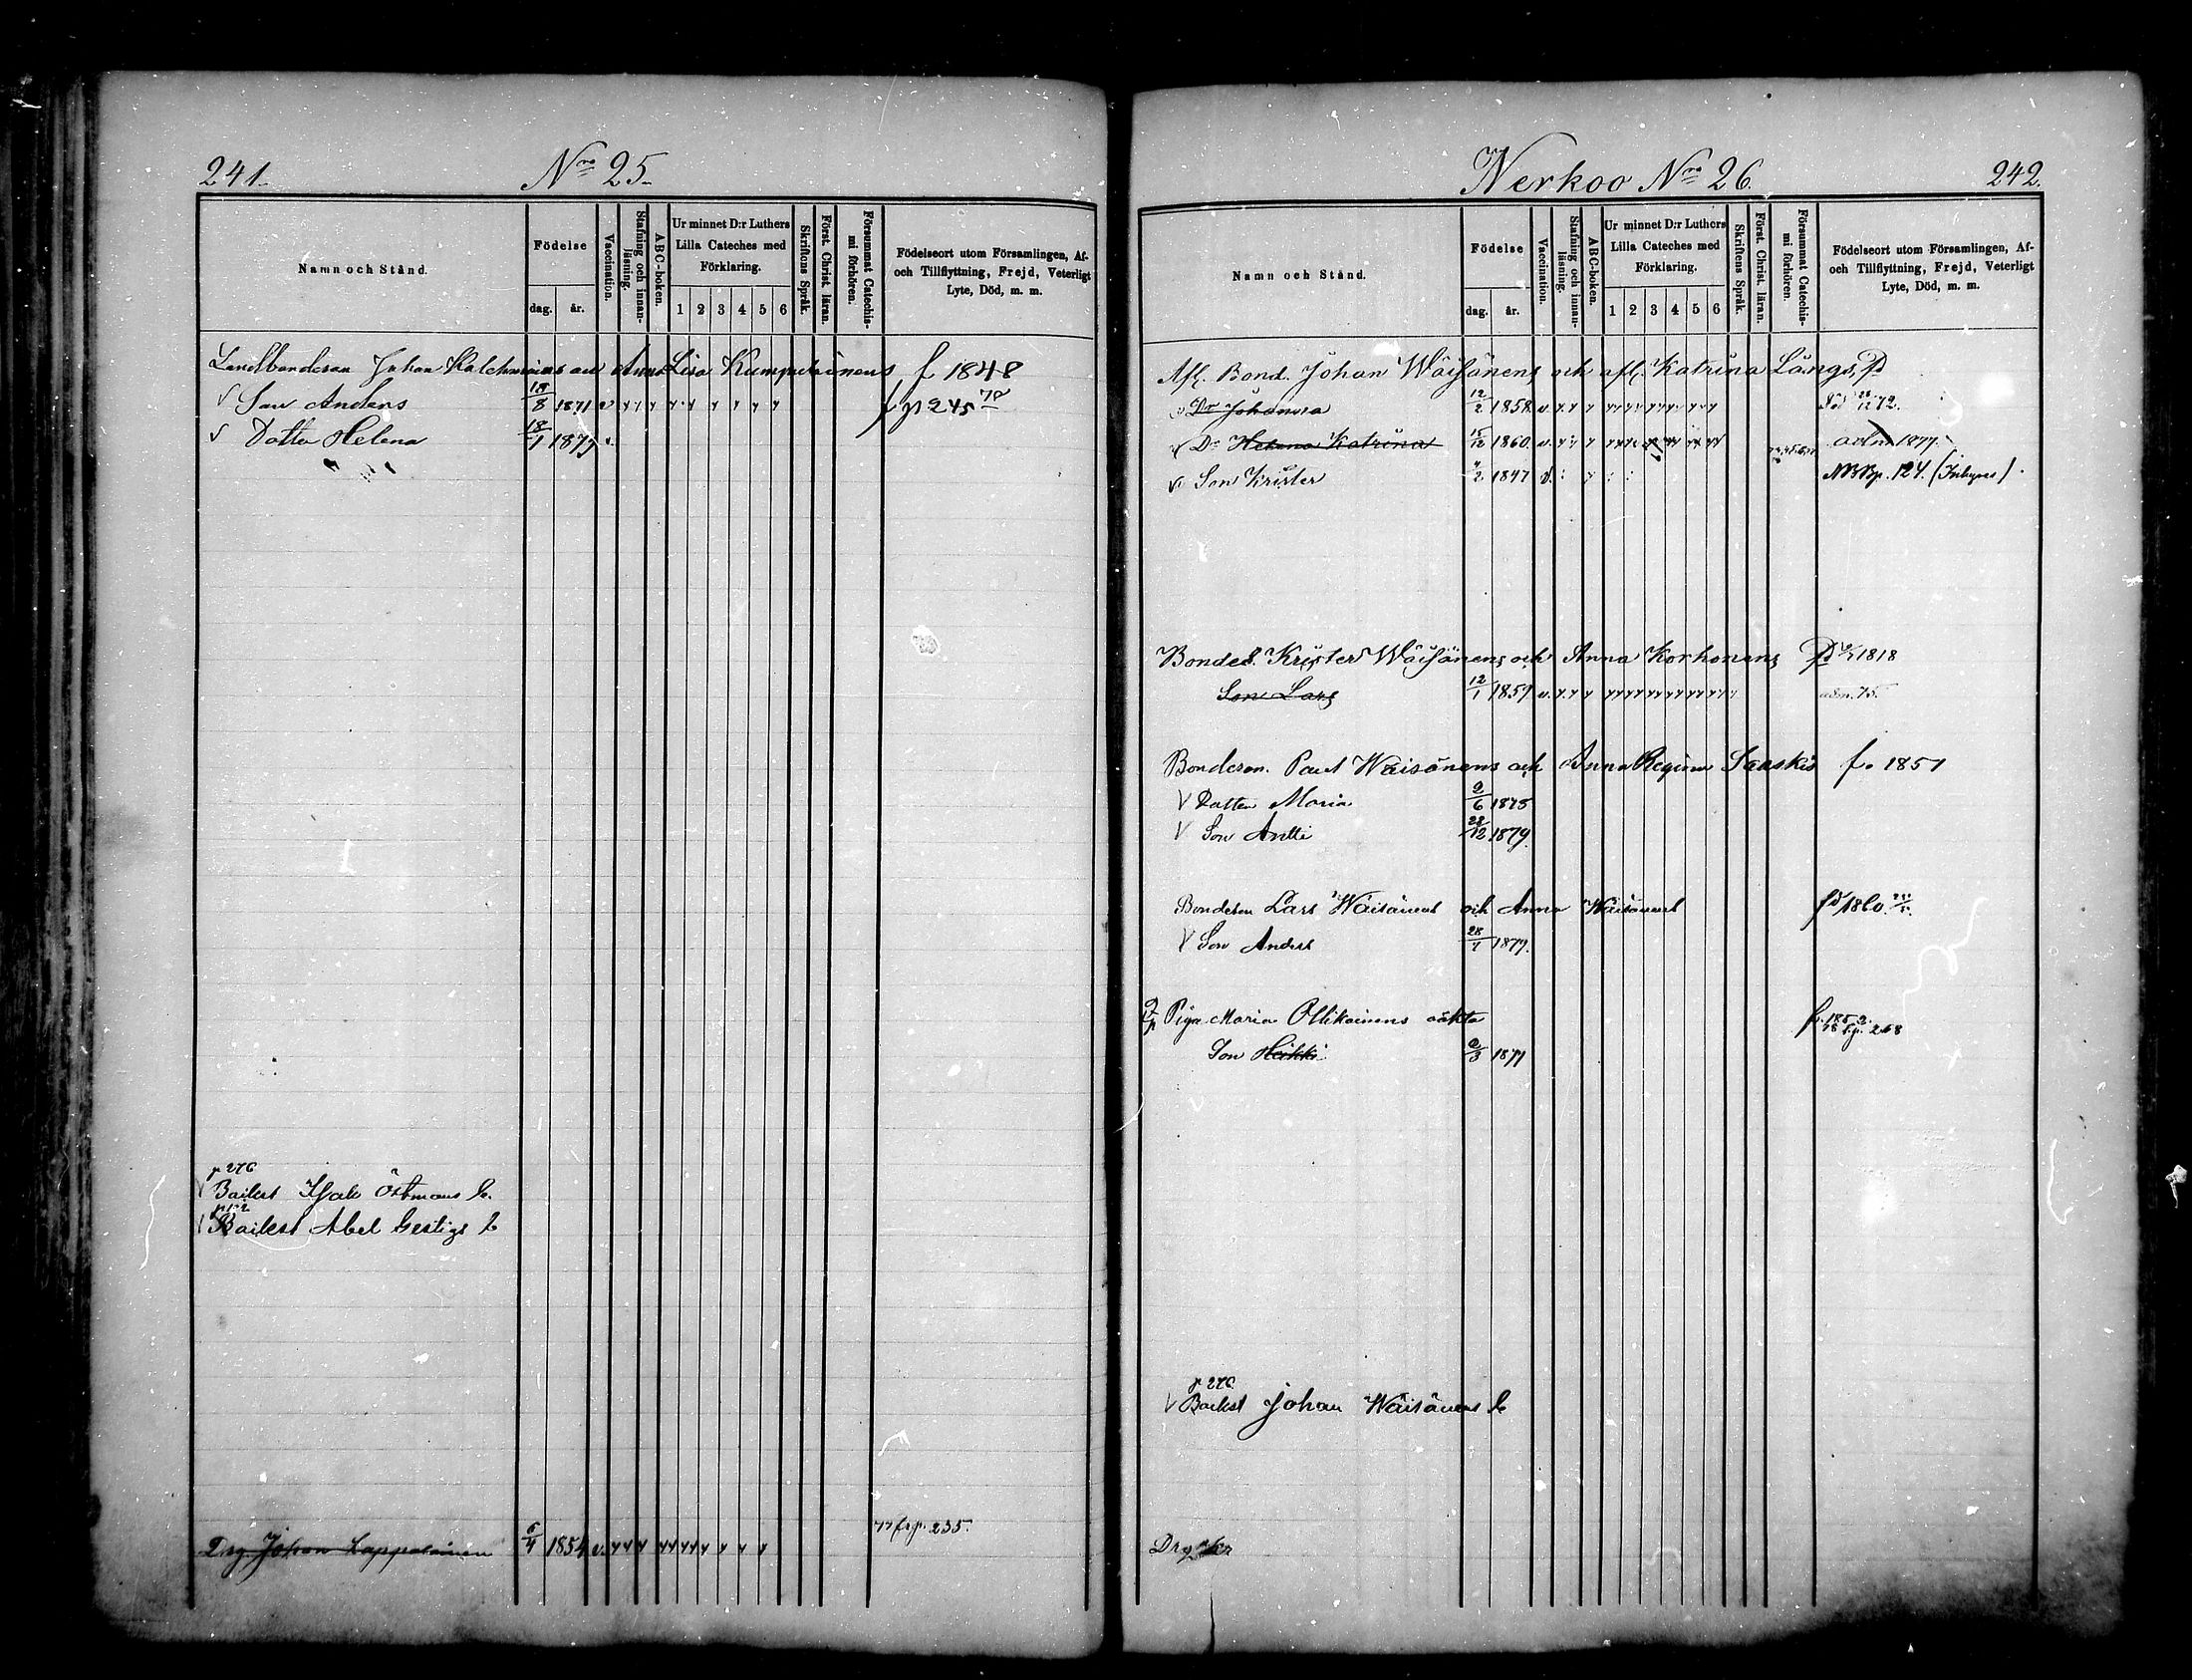 241.
Nro 25.
Namn och Stånd.
Födelse
dag.
år.
Vaccination.
Stafning och innanläsning.
A B C-boken.
Ur minnet D:r Luthers Lilla Cateches med Förklaring.
1 2 3 4 5 6
Skriftens Språk.
Först. Christ. läran.
Försummat Catechismi förhören.
Födelseort utom Församlingen, Af- och Tillflyttning, Frejd, Veterligt Lyte, Död, m. m.
Anna Lisa Kumpulainens f 1848
Son Anders 18/8 1871 p 245 78
Dotter Helena 18/1 1877
p 276
Backst Isak Östmans b.
Backst Abel Gestigs b
77 frp. 235.
Drg. Johan Lappalainen 5/4 1854 v.
Nerkoo Nro 26.
242.
Namn och Stånd.
Födelse
dag.
år.
Vaccination.
Stafning och innanläsning.
A B C-boken.
Ur minnet D:r Luthers Lilla Cateches med Förklaring.
1 2 3 4 5 6
Skriftens Språk.
Först. Christ. läran.
Försummat Catechismi förhören.
Födelseort utom Församlingen, Af- och Tillflyttning, Frejd, Veterligt Lyte, Död, m. m.
Afl. Bond. Johan Wäisänens och afl. Katrina Längs
Dr Johanna 12/2 1858 v. Död 12 72.
Dr Helena Katrina 15/12 1860. v. adm 1877.
Son Krister 4/2 1847 NB Bp. 124.
Bondes. Krister Wäisänens och Anna Korhonens 1818
Son Lars 12/1 1859 v. adm. 75.
Bondeson. Paul Wäisänens och Anna Regina Saaskis f. 1851
Dotter Maria 2/6 1875
Son Antti 28/12 1879.
Bondeson Lars Wäisänens och Anna Wäisänens fd 1860.
Son Anders 28/7 1879.
Piga Maria Ollikainens oäkta f. 1852.
78 frp. 268
Son Heikki 2/3 1877
p 276.
Backst Johan Wäisänens b
Drg